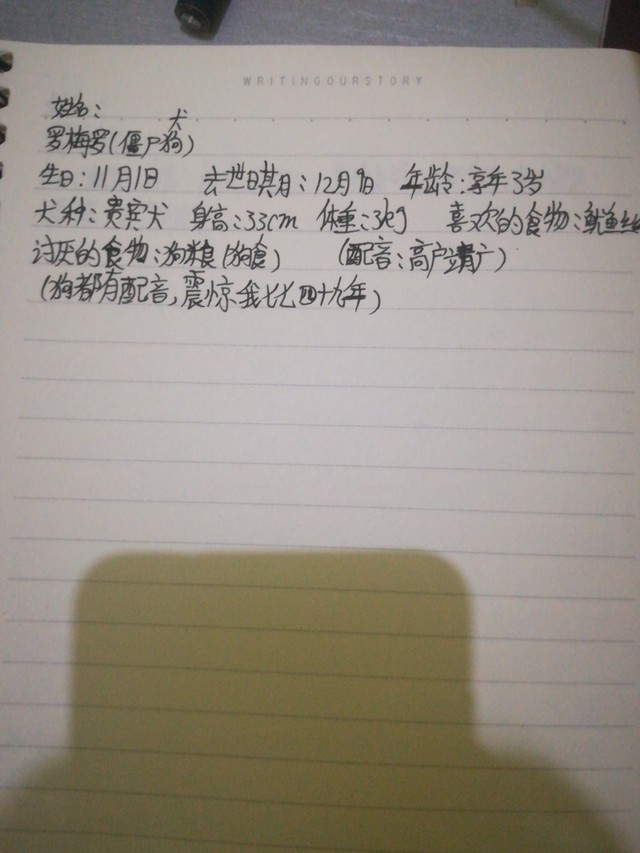 WRITINGOURSTORY
姓名: 犬
罗梅罗(僵尸狗)
生日:11月1日 去世日期:12月9日 年龄:享年3岁
犬种:贵宾犬 身高:33cm 体重:3kg 喜欢的食物:鱿鱼丝
讨厌的食物:狗粮(狗食) (配音:高户靖广)
(狗都有配音,震惊我七七四十九年)